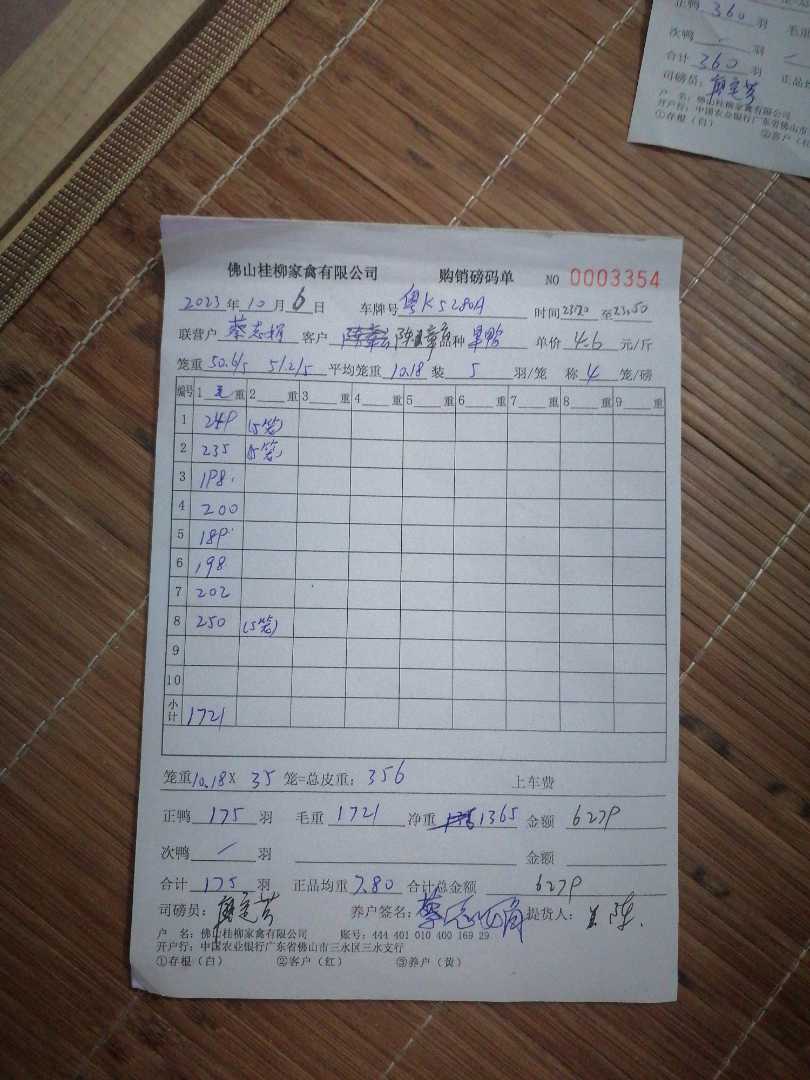 正鸭 360 羽 毛重
次鸭 / 羽
合计 360 羽 正品均
司磅员:
户 名:佛山桂柳家禽有限公司
开户行:中国农业银行广东省佛山市
①存根(白) ②客户(红
佛山桂柳家禽有限公司 购销磅码单 NO 0003354
2023 年 10 月 6 日 车牌号 粤K5280A 时间 23:20 至 23:50
联营户 客户 品种 单价 4.6 元/斤
笼重 50.6/5 51.2/5 平均笼重 10.18 装 5 羽/笼 称 4 笼/磅
编号 1 毛 重 2 重 3 重 4 重 5 重 6 重 7 重 8 重 9 重
1 249 (5笼)
2 235 (5笼)
3 198
4 200
5 189
6 198
7 202
8 250 (5笼)
9
10
小计 1721
笼重 10.18 X 35 笼=总皮重: 356 上车费
正鸭 175 羽 毛重 1721 净重 1365 金额 6279
次鸭 / 羽 金额
合计 175 羽 正品均重 7.80 合计总金额 6279
司磅员: 养户签名: 提货人: 陈
户 名:佛山桂柳家禽有限公司 账号:444 401 010 400 169 29
开户行:中国农业银行广东省佛山市三水区三水支行
①存根(白) ②客户(红) ③养户(黄)